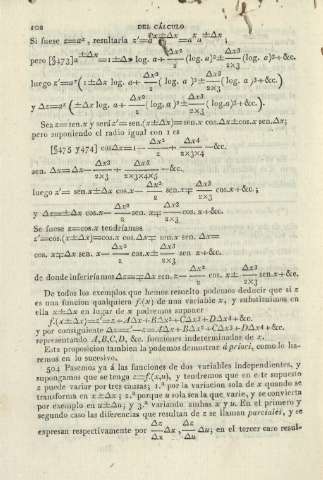 102 DEL CÁLCULO
Si fuese z=aˣ, resultaría z'=a^(x±Δx)=aˣ a^(±Δx) ;
pero [§473] a^(±Δx)=1±Δx log. a+Δx²/2 (log. a)²±Δx3/2×3 (log. a)3+&c.
luego z'=aˣ(1±Δx log. a+Δx²/2 (log. a)²±Δx3/2×3 (log. a)3+&c.)
y Δz=aˣ(±Δx log. a+Δx²/2 (log. a)²±Δx3/2×3 (log. a)3+&c.).
Sea z=sen.x y será z'=sen.(x±Δx)=sen.x cos.Δx±cos.x sen.Δx;
pero suponiendo el radio igual con 1 es
[§475 y 474] cos Δx=1−Δx²/2+Δx4/2×3×4−&c.
sen. Δx=Δx−Δx3/2×3+Δx5/2×3×4×5−&c.
luego z'=sen.x±Δx cos.x−Δx²/2 sen.x∓Δx3/2×3 cos.x+&c. ;
y Δz=±Δx cos.x−Δx²/2 sen.x∓Δx3/2×3 cos. x+&c.
Se fuese z=cos.x tendríamos
z'=cos.(x±Δx)=cos.x cos.Δx∓sen.x sen. Δx=
cos. x∓Δx sen. x−Δx²/2 cos.x±Δx3/2×3 sen. x+&c.
de donde inferiríamos Δz=∓Δx sen.x−Δx²/2 cos. x±Δx3/2×3 sen.x+&c.
De todos los exemplos que hemos resuelto podemos deducir que si z
es una funcion qualquiera f.(x) de una variable x, y substituimos en
ella x±Δx en lugar de x podremos suponer
f.(x±Δx)=z'=z+AΔx+BΔx²+CΔx3+DΔx4+&c.
y por consiguiente Δz=z'−z=AΔx+BΔx²+CΔx3+DΔx4+&c.
representando A,B,C,D, &c. funciones indeterminadas de x.
Esta proposicion tambien la podemos demostrar á priori, como lo haremos
en lo sucesivo.
504 Pasemos ya á las funciones de dos variables independientes, y
supongamos que se tenga z=f.(x,u), y tendremos que en este supuesto
z puede variar por tres causas; 1.º por la variacion sola de x quando se
transforma en x±Δx ; 2.º porque u sola sea la que varíe, y se convierta
por exemplo en u±Δu; y 3.º variando ambas x y u. En el primero y
segundo caso las diferencias que resultan de z se llaman parciales, y se
expresan respectivamente por Δz/Δx Δx, Δz/Δu Δu; en el tercer caso resul-